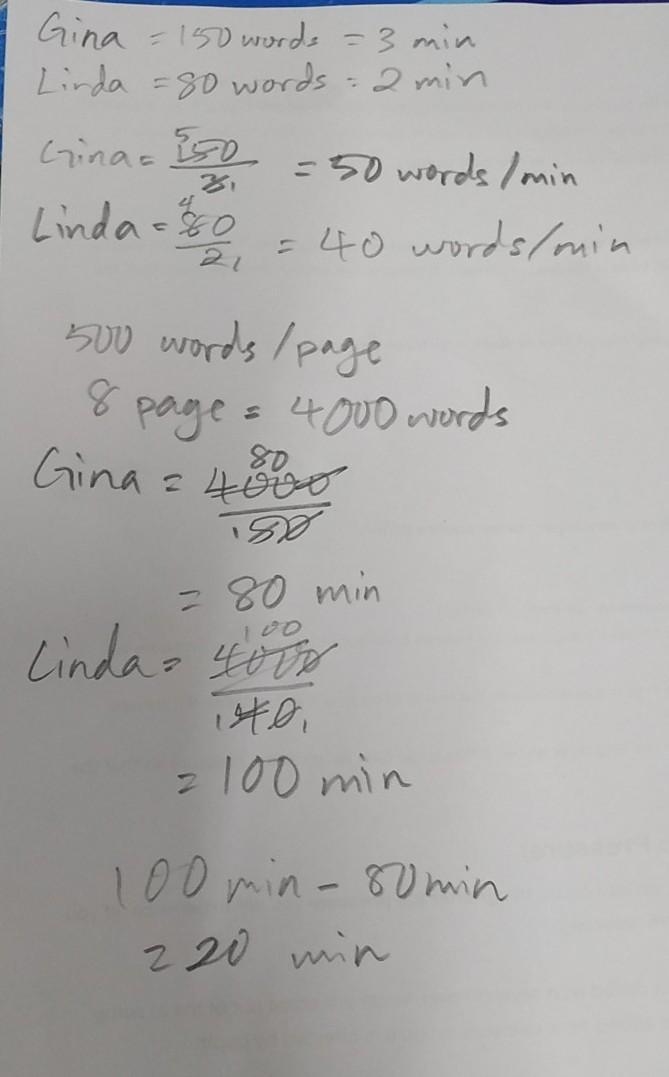 Gina = 150 words = 3 min
Linda = 80 words = 2 min
Gina = 150/3 = 50 words/min
Linda = 80/2 = 40 words/min
500 words/page
8 page = 4000 words
Gina = 4000/50
80
= 80 min
Linda = 4000/40
100
= 100 min
100 min - 80 min
= 20 min